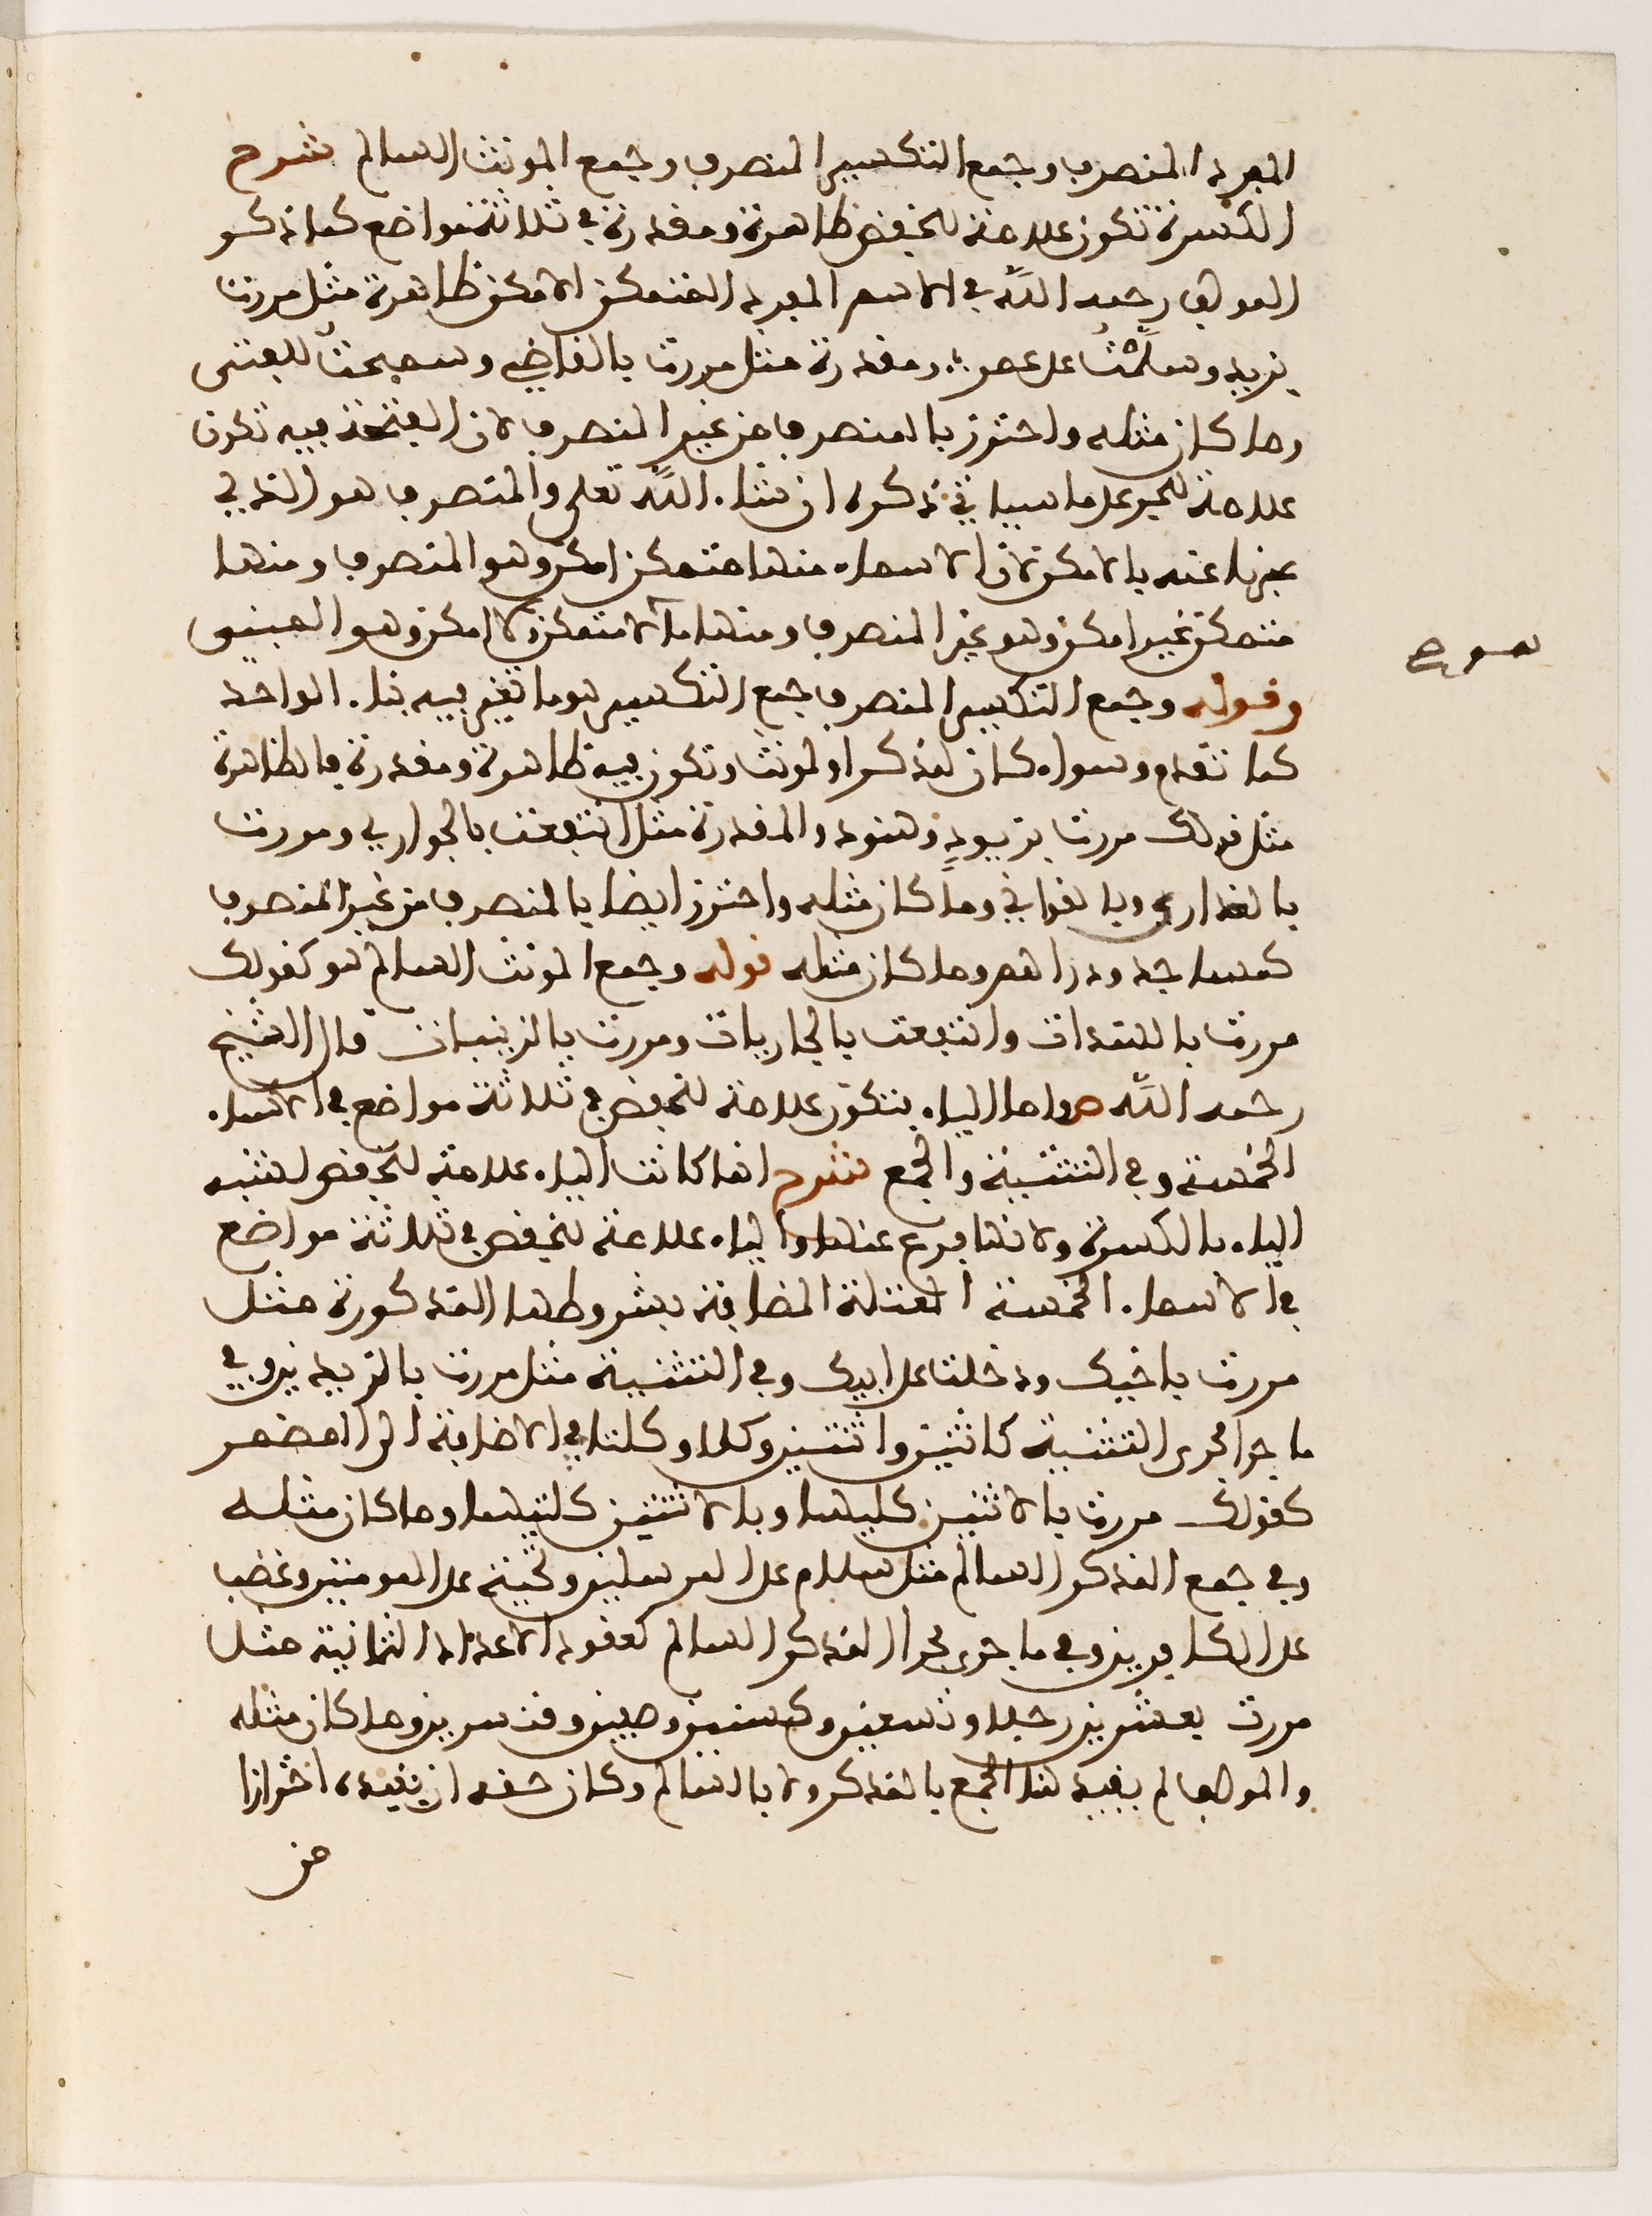 المفرد المنصرف وجمع التكسير المنصرف وجمع المونث السالم شرح
الكسرة تكون علامة للخفض ظاهرة ومقدرة في ثلاثة مواضع كما ذكر
المولف رحمه الله في الاسم المفرد المتمكن الامكن ظاهرة مثل مررت
بزيد وسلمت على عمرو ومقدرة مثل مررت بالقاضي وسبحت للفتى
وما كان مثله واحترز بالمنصرف من غير المنصرف لان الفتحة فيه تكون
علامة للجر على ما سياتي ذكره ان شاء الله تعلى والمنصرف هو الذي
عبرنا عنه بالامكن لان الاسماء منها متمكن امكن وهو المنصرف ومنها
متمكن غير امكن وهو غير المنصرف ومنها ما لا متمكن ولا امكن وهو المبني
وقوله وجمع التكسير المنصرف جمع التكسير هو ما تغير فيه بناء الواحد
كما تقدم وسواء كان لمذكر او لمونث وتكون فيه ظاهرة ومقدرة فالظاهرة
مثل قولك مررت بزيود وهنود والمقدرة مثل انتفعت بالجواري ومررت
بالعذارى وبالغواني وما كان مثله واحترز ايضا بالمنصرف من غير المنصرف
كمساجد ودراهم وما كان مثله قوله وجمع المونث السالم هو كقولك
مررت بالهندات وانتفعت بالجاريات ومررت بالزينبات قال الشيخ
رحمه الله ص واما الياء فتكون علامة للخفض في ثلاثة مواضع في الاسماء
الخمسة وفي التثنية والجمع شرح انما كانت الياء علامة للخفض لشبه
الياء بالكسرة ولانها فرع عنها والياء علامة للخفض في ثلاثة مواضع
في الاسماء الخمسة المعتلة المضافة بشروطها المذكورة مثل
مررت باخيك ودخلت على ابيك وفي التثنية مثل مررت بالزيدين وفي
ما جرا مجرى التثنية كاثنين واثنتين وكلا وكلتا في الاضافة الى المضمر
كقولك مررت بالاثنين كليهما وبالاثنتين كلتيهما وما كان مثله
وفي جمع المذكر السالم مثل سلام على المرسلين وتحية على المومنين وغضب
على الكافرين وفي ما جرى مجرا المذكر السالم كعقود الاعداد الثمانية مثل
مررت بعشرين رجلا وتسعين وكسنين وميين وقنسرين وما كان مثله
والمولف لم يقيد هذا الجمع بالمذكر ولا بالسالم وكان حقه ان يقيده احترازا
من